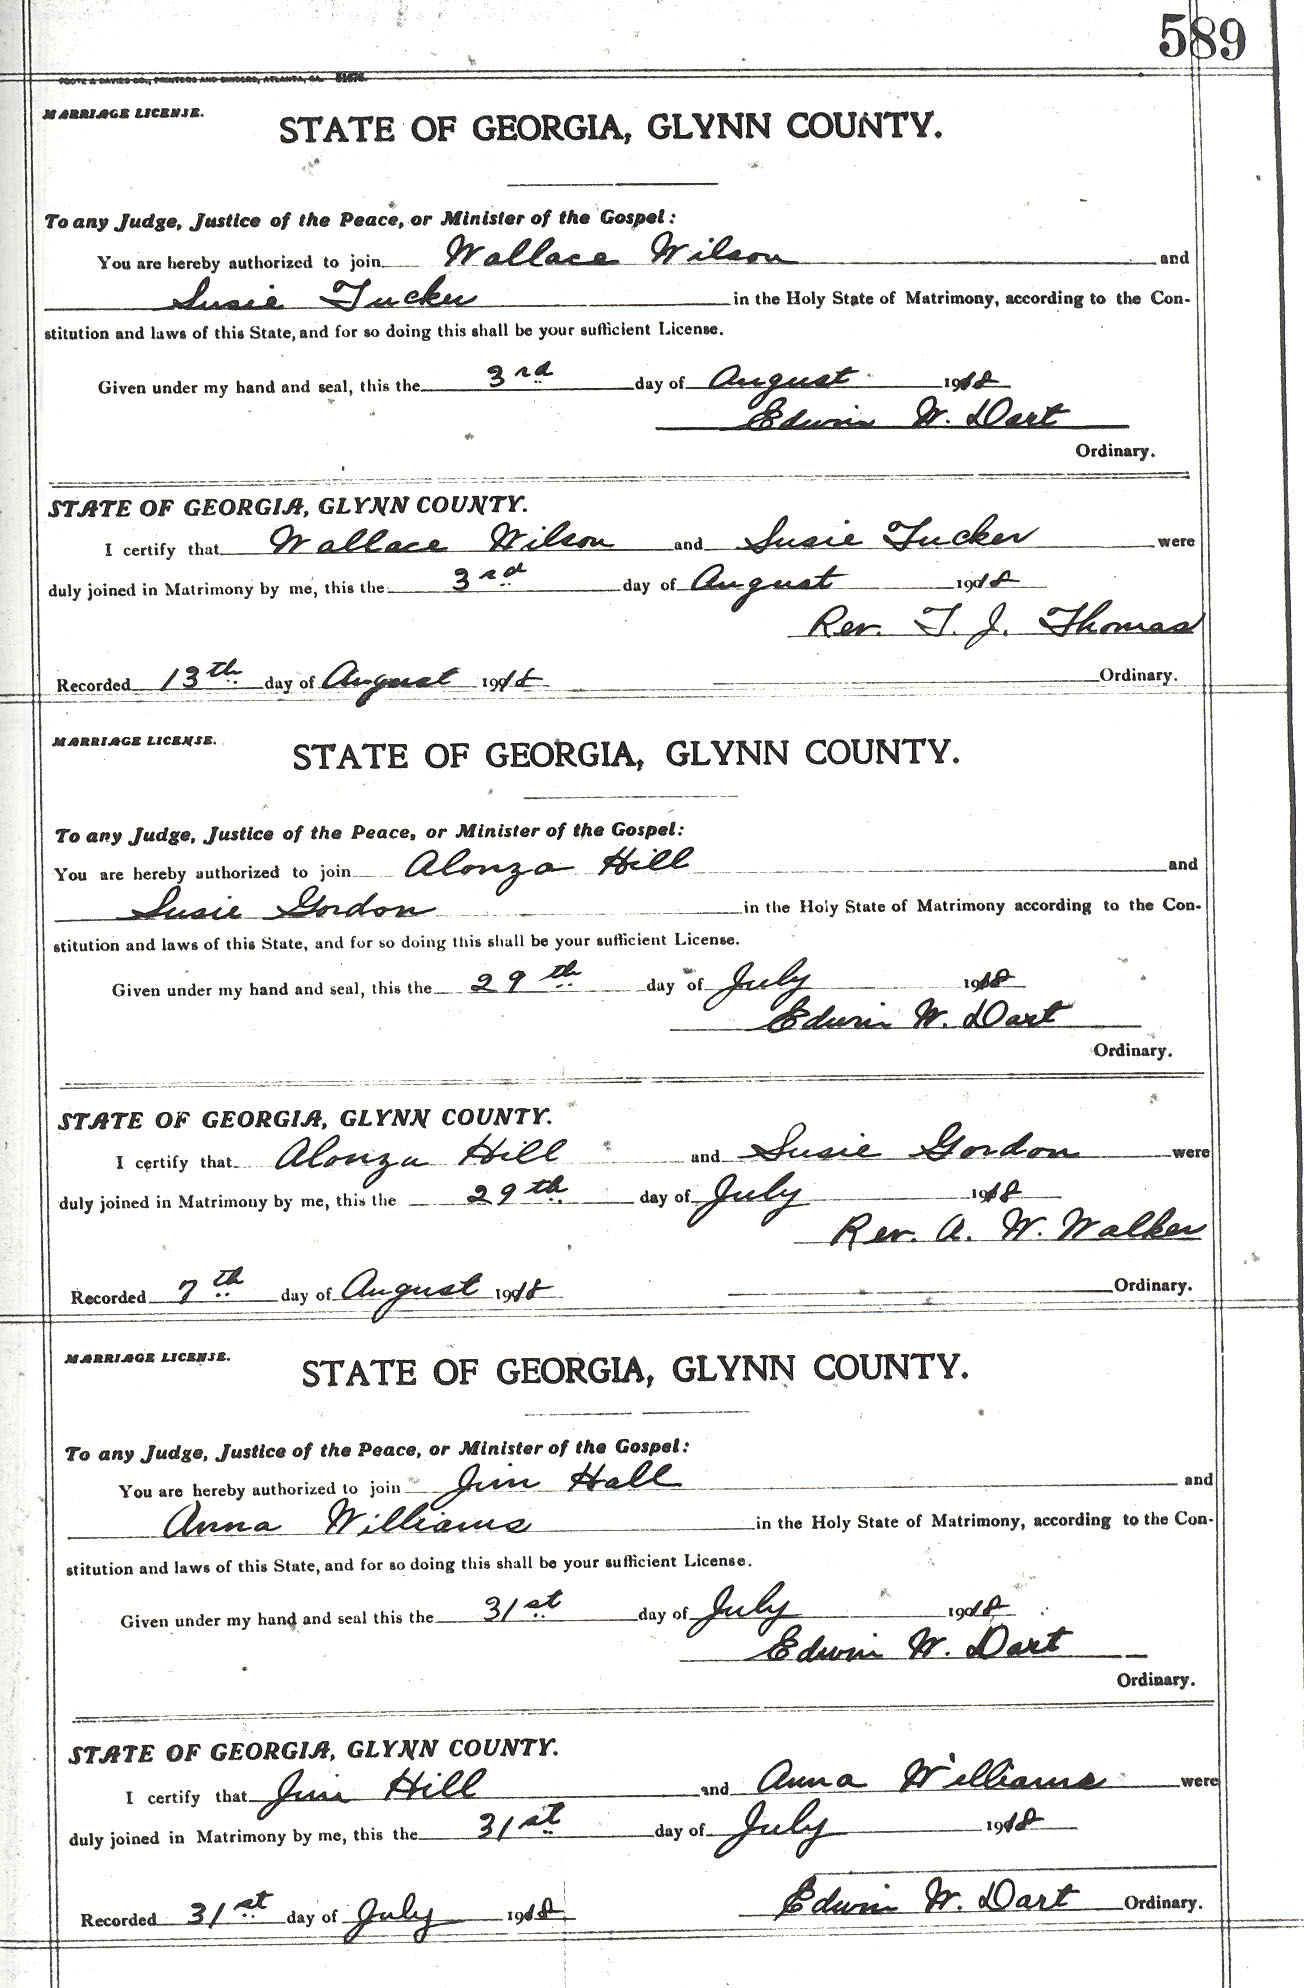 589
FOOTE & DAVIES CO., PRINTERS AND BINDERS, ATLANTA, GA.
MARRIAGE LICENSE.
STATE OF GEORGIA, GLYNN COUNTY.
To any Judge, Justice of the Peace, or Minister of the Gospel:
You are hereby authorized to join Wallace Wilson and
Susie Tucker in the Holy State of Matrimony, according to the Con-
stitution and laws of this State, and for so doing this shall be your sufficient License.
Given under my hand and seal, this the 3rd day of August 1918
Edwin W. Dart
Ordinary.
STATE OF GEORGIA, GLYNN COUNTY.
I certify that Wallace Wilson and Susie Tucker were
duly joined in Matrimony by me, this the 3rd day of August 1918
Rev. T. J. Thomas
Recorded 13th day of August 1918 Ordinary.
MARRIAGE LICENSE.
STATE OF GEORGIA, GLYNN COUNTY.
To any Judge, Justice of the Peace, or Minister of the Gospel:
You are hereby authorized to join Alonza Hill and
Susie Gordon in the Holy State of Matrimony according to the Con-
stitution and laws of this State, and for so doing this shall be your sufficient License.
Given under my hand and seal, this the 29th day of July 1918
Edwin W. Dart
Ordinary.
STATE OF GEORGIA, GLYNN COUNTY.
I certify that Alonza Hill and Susie Gordon were
duly joined in Matrimony by me, this the 29th day of July 1918
Rev. A. W. Walker
Recorded 7th day of August 1918 Ordinary.
MARRIAGE LICENSE.
STATE OF GEORGIA, GLYNN COUNTY.
To any Judge, Justice of the Peace, or Minister of the Gospel:
You are hereby authorized to join Jim Hall and
Anna Williams in the Holy State of Matrimony, according to the Con-
stitution and laws of this State, and for so doing this shall be your sufficient License.
Given under my hand and seal this the 31st day of July 1918
Edwin W. Dart
Ordinary.
STATE OF GEORGIA, GLYNN COUNTY.
I certify that Jim Hill and Anna Williams were
duly joined in Matrimony by me, this the 31st day of July 1918
Recorded 31st day of July 1918 Edwin W. Dart Ordinary.